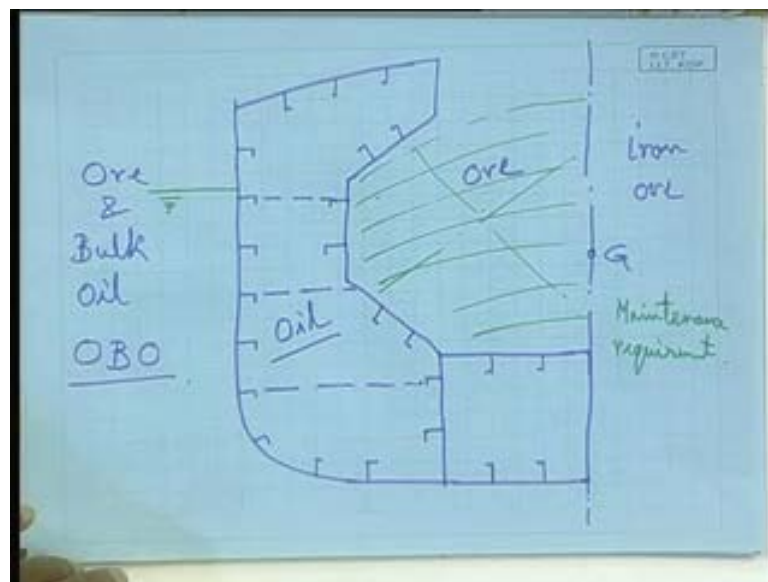 Ore
&
Bulk
Oil
OBO
Ore
Oil
Iron
ore
G
Maintenance
requirent.